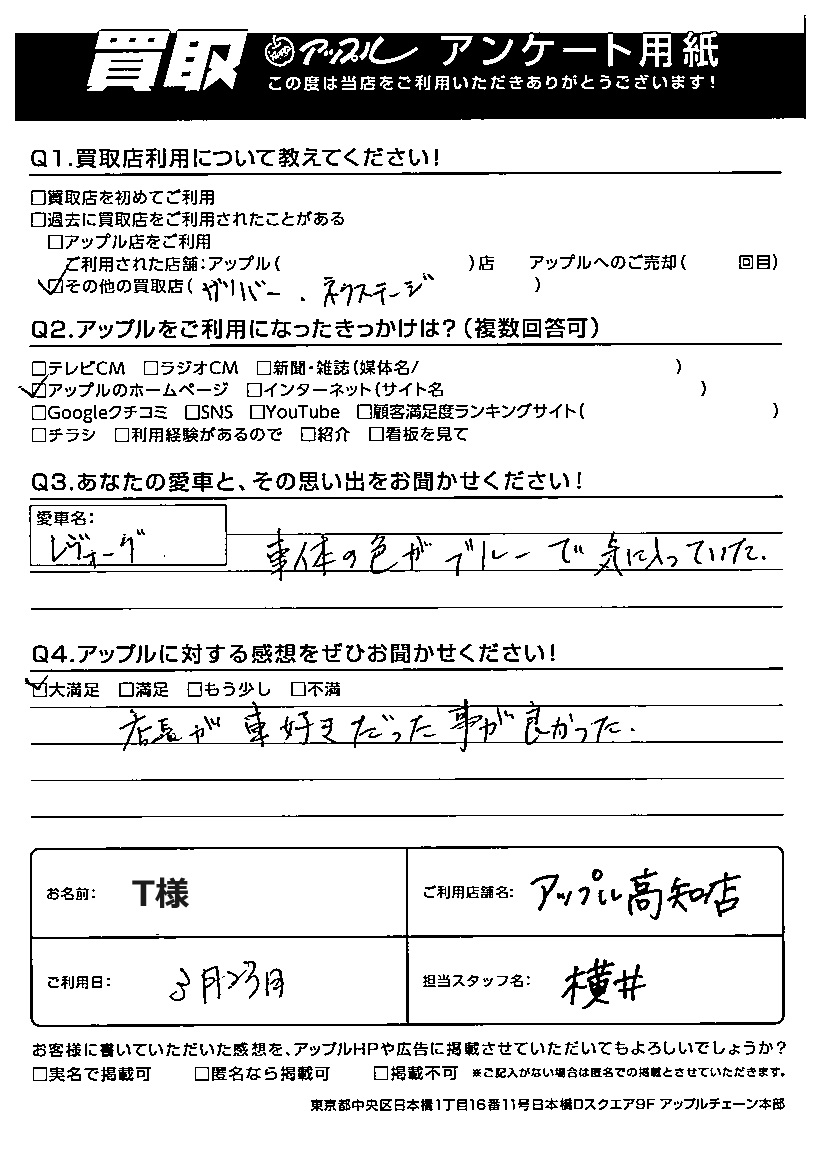 買取 アップル アンケート用紙
この度は当店をご利用いただきありがとうございます!
Q1.買取店利用について教えてください!
□買取店を初めてご利用
□過去に買取店をご利用されたことがある
□アップル店をご利用
ご利用された店舗:アップル( )店 アップルへのご売却( 回目)
☑その他の買取店( ガリバー . ネクステージ )
Q2.アップルをご利用になったきっかけは?(複数回答可)
□テレビCM □ラジオCM □新聞・雑誌(媒体名/ )
☑アップルのホームページ □インターネット(サイト名 )
□Googleクチコミ □SNS □YouTube □顧客満足度ランキングサイト( )
□チラシ □利用経験があるので □紹介 □看板を見て
Q3.あなたの愛車と、その思い出をお聞かせください!
愛車名:
レヴォーグ 車体の色がブルーで気に入っていた.
Q4.アップルに対する感想をぜひお聞かせください!
☑大満足 □満足 □もう少し □不満
店長が車好きだった事が良かった.
お名前: T様 ご利用店舗名: アップル高知店
ご利用日: 3月23日 担当スタッフ名: 横井
お客様に書いていただいた感想を、アップルHPや広告に掲載させていただいてもよろしいでしょうか?
□実名で掲載可 □匿名なら掲載可 □掲載不可 ※ご記入がない場合は匿名での掲載とさせていただきます。
東京都中央区日本橋1丁目16番11号日本橋Dスクエア9F アップルチェーン本部